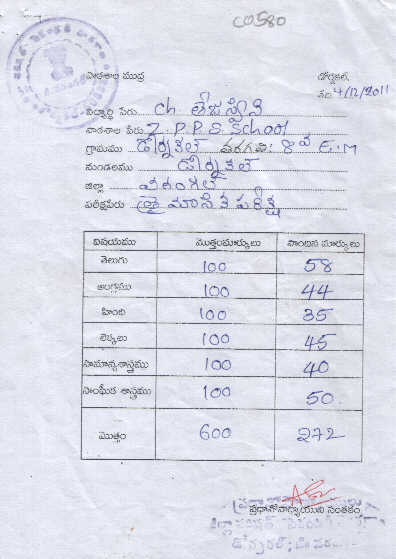 C0580
పాఠశాల ముద్ర
డోర్నకల్,
తేది: 4/12/2011
విద్యార్థి పేరు. Ch తేజస్విని
పాఠశాల పేరు. Z. P. P. S. School
గ్రామము డోర్నకల్ తరగతి: 8 వ E.M
మండలము డోర్నకల్
జిల్లా వరంగల్
పరీక్షపేరు త్రై మాసిక పరీక్ష
విషయము మొత్తంమార్కులు పొందిన మార్కులు
తెలుగు 100 58
ఆంగ్లము 100 44
హింది 100 35
లెక్కలు 100 45
సామాన్యశాస్త్రము 100 40
సాంఘీక శాస్త్రము 100 50
మొత్తం 600 272
ప్రధానోపాధ్యాయుని సంతకం